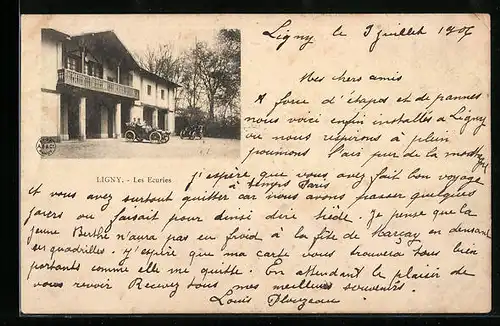 Ligny le 9 juillet 1906
Mes chers amis
A force d'étapes et de pannes
nous voici enfin installés a Ligny
ou nous respirons à plein
poumons l'air pur de la montagne
LIGNY. - Les Ecuries
J'espère que vous avez fait bon voyage
et vous avez surtout quitter à temps Paris
car nous avons passer quelques
jours ou faisait pour dinsi dire tiède. Je pense que la
jeune Berthe n'aura pas eu froid à la fête de en dansant
en quadrilles. J'espère que ma carte vous trouvera tous bien
portants comme elle me quitte. En attendant le plaisir de
vous revoir Recevez tous mes meilleurs souvenirs.
Louis